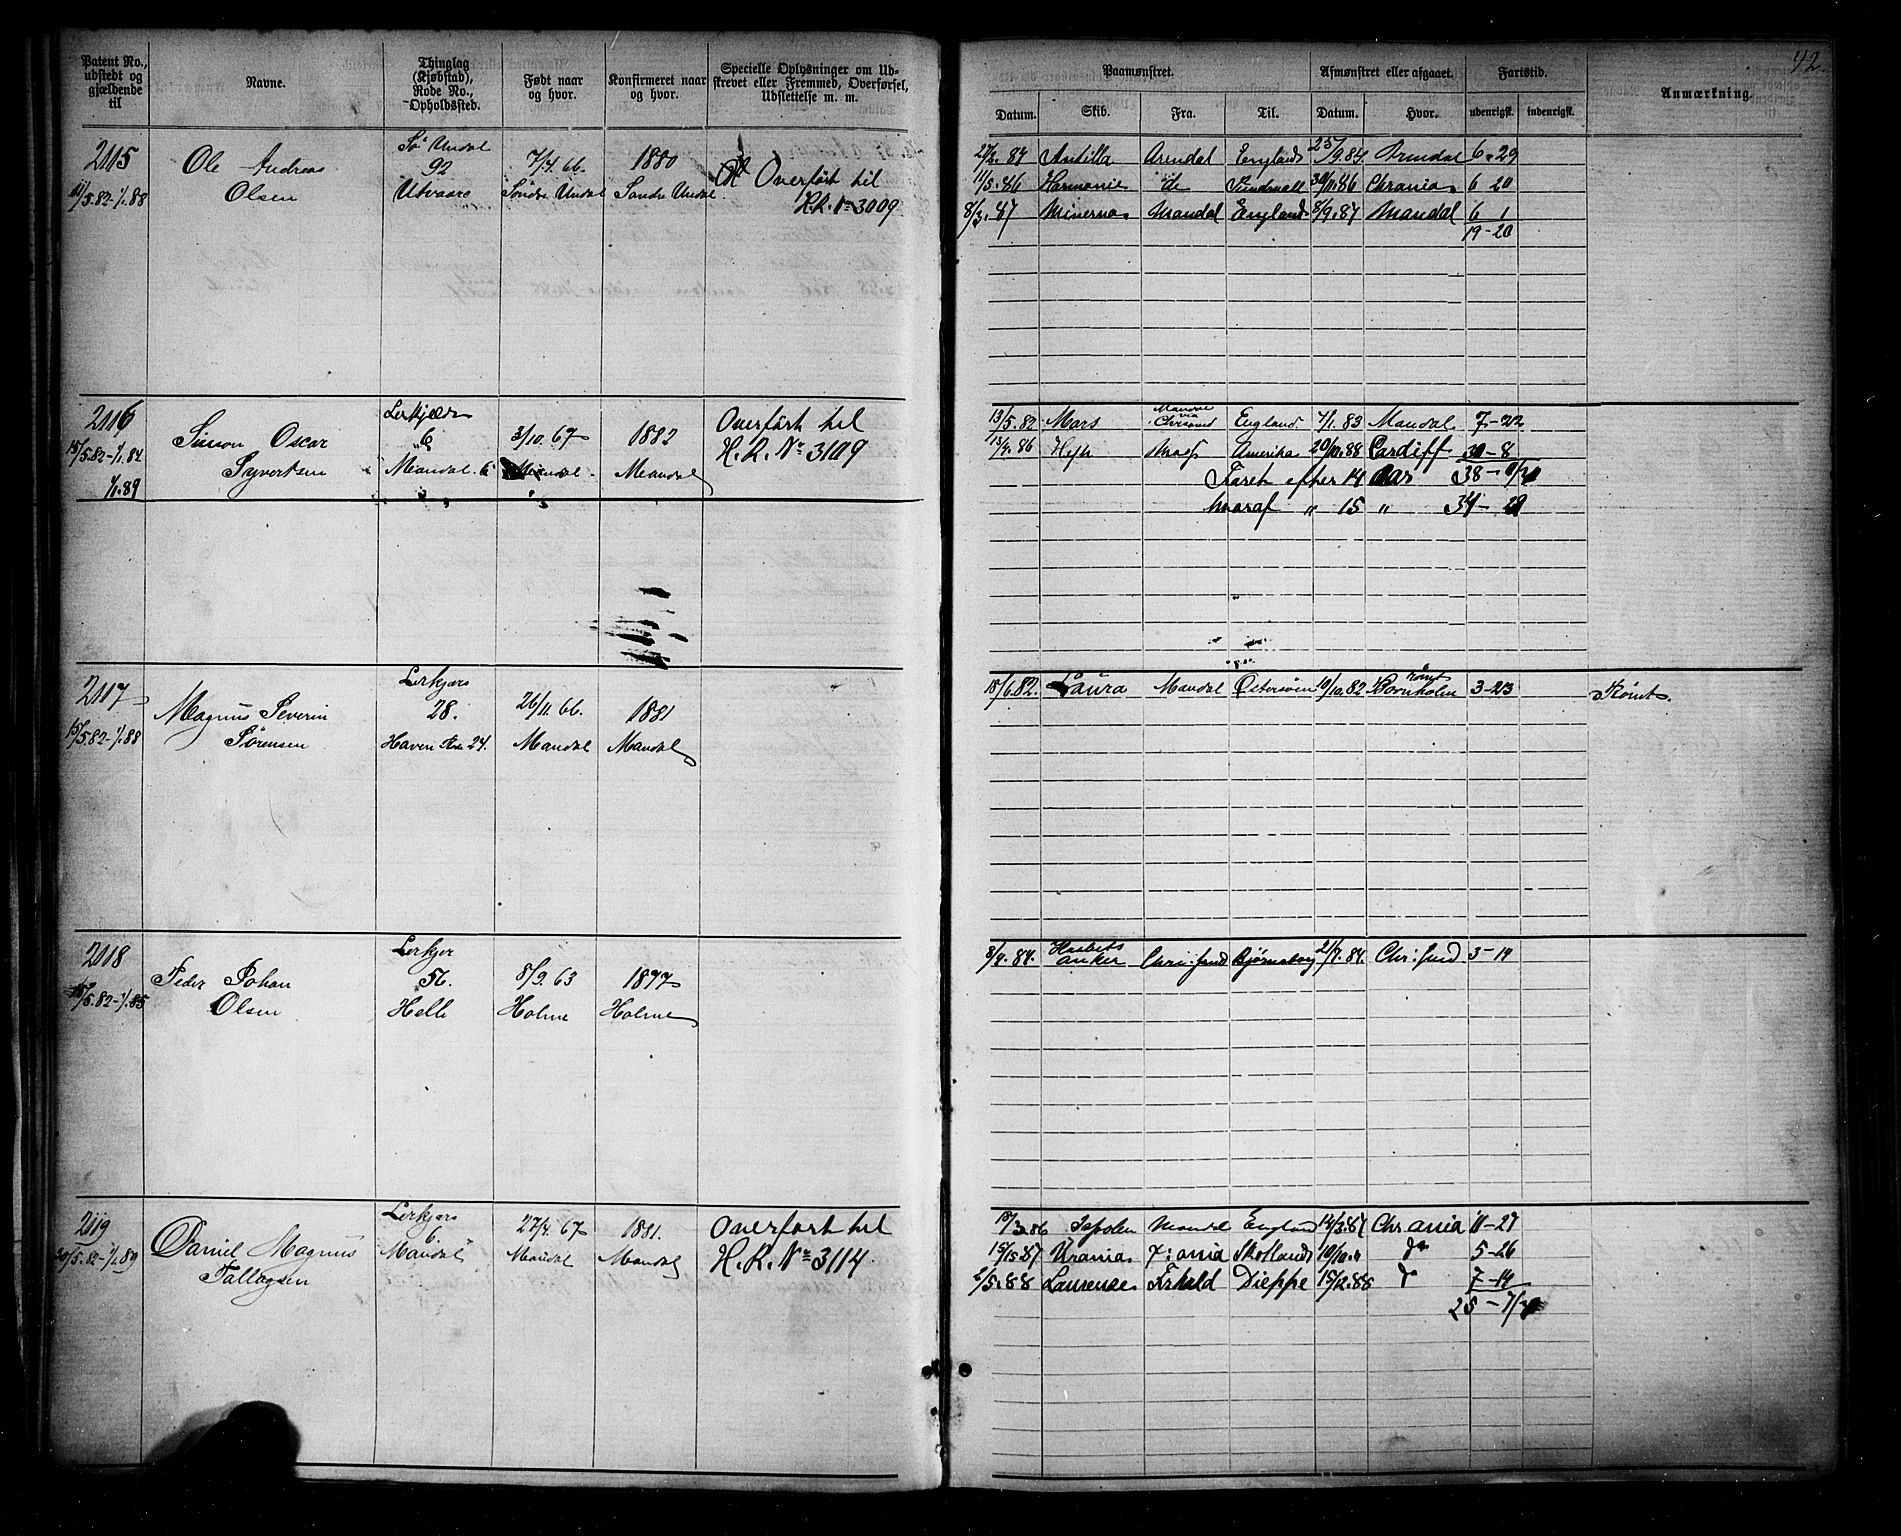 42.
Patent No., udstedt og gjældende til
Navne.
Thinglag (Kjøbstad), Rode No., Opholdssted.
Født naar og hvor.
Konfirmeret naar og hvor.
Specielle Oplysninger om Udskrevet eller Fremmed, Overførsel, Udslettelse m. m.
Paamønstret.
Afmønstret eller afgaaet.
Fartstid.
Anmærkning.
Datum.
Skib.
Fra.
Til.
Datum.
Hvor.
udenrigsk.
indenrigsk.
2115
11/5.82-1/1.88
Ole Andreas
Olsen
Sø Undal
92
Utvaare
7/4.66.
Søndre Undal
1880
Søndre Undal.
Overført til
H.R. No 3009
27/2.84 Antilla Arendal England 25/9.84 Arendal 6-29
11/5.86 Harmonie do Sundsvall 30/11.86 Chrania 6 20
8/3.87 Minerva Mandal England 8/9.87 Mandal 6 1
19-20
2116
15/5.82-1/1.84
1/1.89
Simon Oscar
Syvertsen
Lerkjær
6
Mandal 6
3/10.67
Mandal.
1882
Mandal
Overført til
H.R. No 3109
13/5.82 Mars Mandal via Chrsand England 4/1.83 Mandal 7-22
13/4.86 Moss Amerika 20/10.88 Cardiff 30-8
Faret efter 14 Aar 38-0/30
hvoraf " 15 " 34-21
2117
15/5.82-1/1.88
Magnus Severin
Sørensen
Lerkjærs
28.
Haven Rode 24.
26/11.66.
Mandal
1881
Mandal
18/6.82. Laura Mandal Østersøen 10/10.82 Rønt Bornholm 3-23 Rømt.
2118
15/5.82-1/1.85
Peder Johan
Olsen
Lerkjer
56.
Helle
8/9.63
Holme
1877
Holme
8/4.84. Haabets anker Chri:sand Bjørneborg 21/7.84. Chri:sand 3-14
2119
30/5.82-1/1.89
Daniel Magnus
Tallagsen
Lerkjærs
6
Mandal
27/4.67
Mandal
1881.
Mandal
Overført til
H.R. No 3114
18/3.86 Mandal England 14/3.87 Chrania 11-27
Urania 7:ania Skotland 10/10. do 5-26
2/5.88 Laurense Dieppe 15/12.88 do 7-14
25-7/30